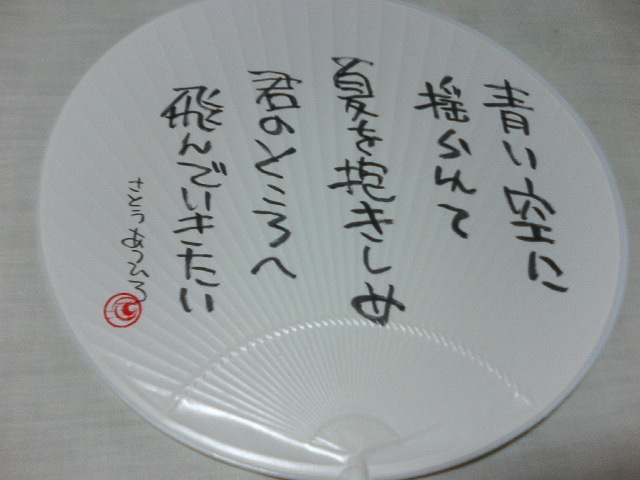 青い空に
揺られて
夏を抱きしめ
君のところへ
飛んでいきたい
さとうあつひろ